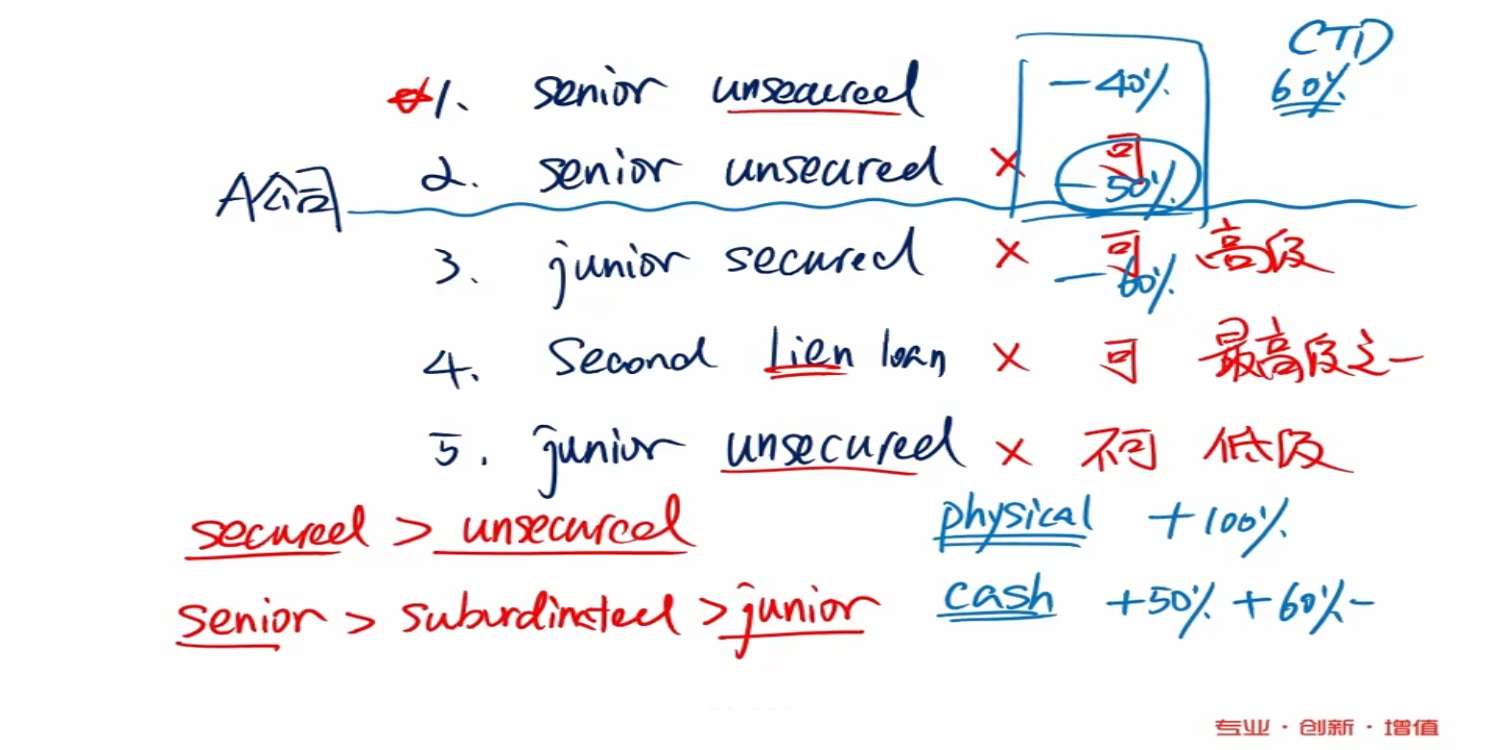 CTD
1. senior unsecured -40% 60%
2. senior unsecured × 可 -50%
A公司
3. junior secured × 可 高级
-60%
4. Second Lien loan × 可 最高级之一
5. junior unsecured × 不可 低级
secured > unsecured physical +100%
senior > suburdinated > junior cash +50% +60% -
专业·创新·增值